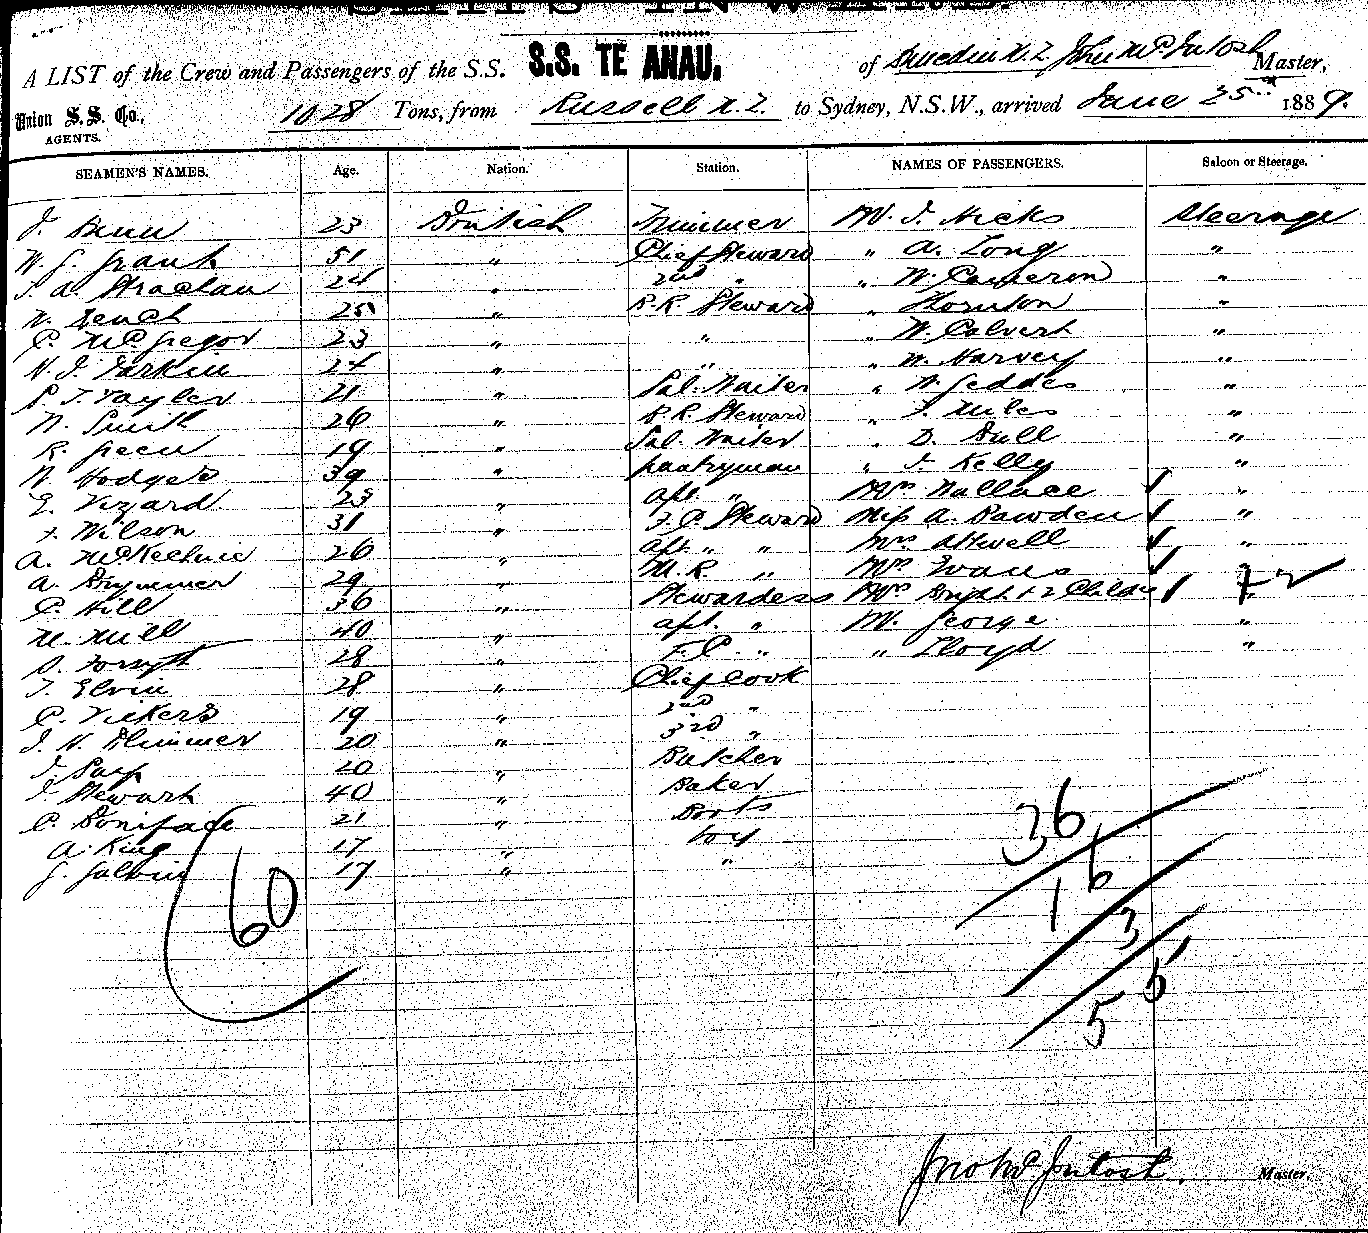 SHIPS INWARDS.
A LIST of the Crew and Passengers of the S.S. S.S. TE ANAU. of Dunedin N.Z. John McIntosh Master,
Union S.S. Co., AGENTS. 1028 Tons, from Russell N.Z. to Sydney, N.S.W., arrived June 25th 1889.
SEAMEN'S NAMES. Age. Nation. Station. NAMES OF PASSENGERS. Saloon or Steerage.
J. 23 British Trimmer Mr. J. Hicks Steerage
W. G. Grant 51 " Chief Steward " A. Long "
J. A. Strachan 24 " 2nd " " W. Cameron "
W. 25 " R.R. Steward " Thornton "
C. McGregor 23 " " " W. Calvert "
W. J. Larkin 24 " " " W. Harvey "
P. T. Taylor 21 " Sal. Waiter " W. Geddes "
W. Smith 26 " R.R. Steward " J. Miles "
R. Green 19 " Sal. Waiter " D. Bull "
W. Hodges 39 " Pantryman " J. Kelly "
E. Vizard 23 " aft " Mrs Wallace "
J. Wilson 31 " F.C. Steward Miss A. Rawden "
A. McKechnie 26 " aft. " " Mrs Atwell "
A. 29 " M.R. " Mrs Evans "
C. Hill 36 " Stewardess Mrs Bright & 2 Childn "
M. Mill 40 " aft. " Mr. George "
D. Forsyth 28 " F.C. " " Lloyd "
T. Elvin 28 " Chief Cook
C. Vickers 19 " 2nd "
J. W. Plimmer 20 " 3rd "
J. 20 " Butcher
J. Stewart 40 " Baker
C. Boniface 21 " Boots
A. King 17 " boy
G. Galvin 17 " "
60
36
16
3
55
Jno McIntosh. Master.